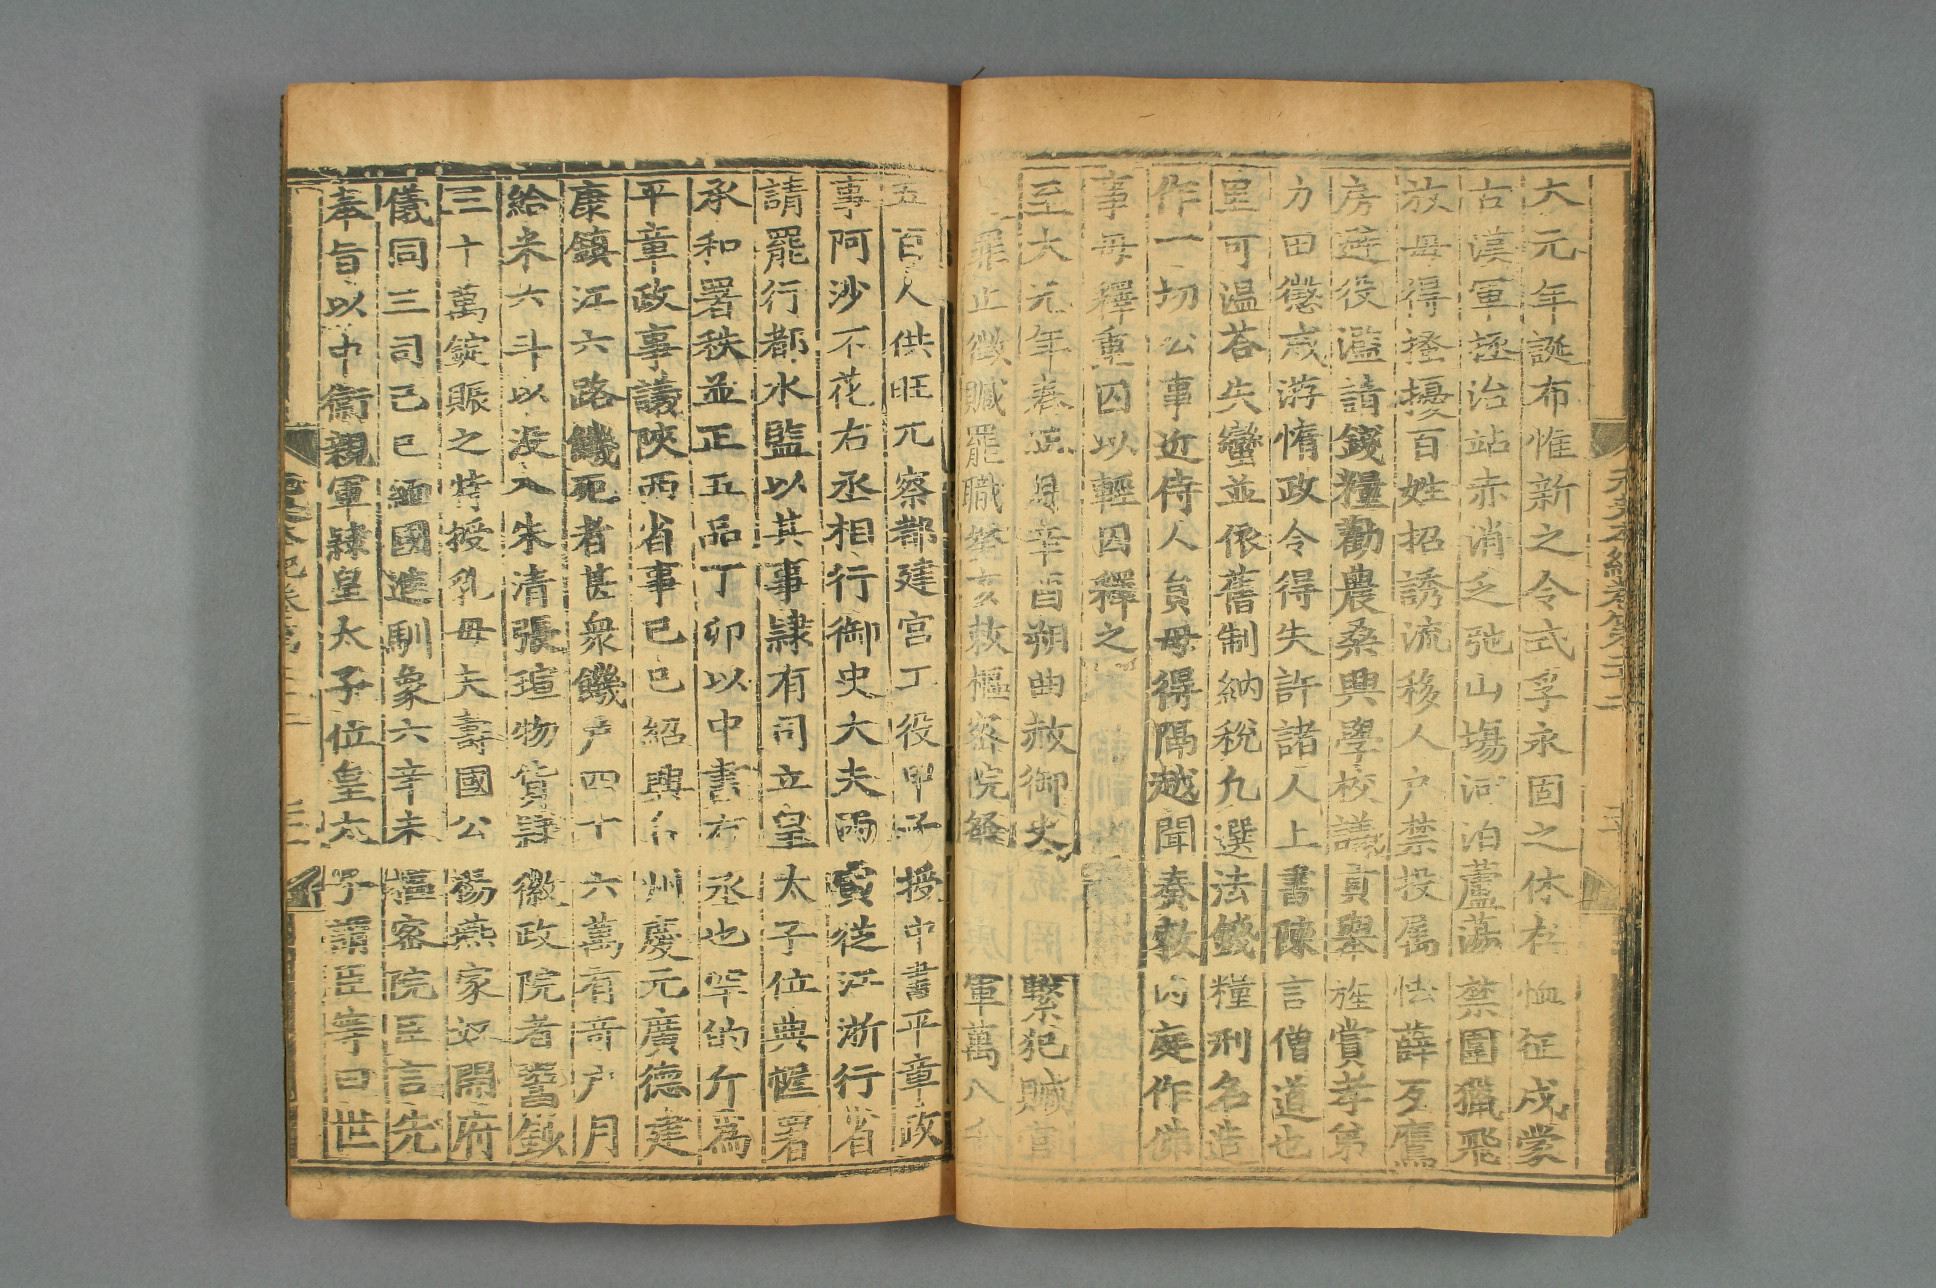 大元年誕布惟新之令式孚永固之休在恤征戍蒙
古漢軍拯治站赤消乏弛山場河泊蘆蕩禁圍獵飛
放毋得搔擾百姓招誘流移人户禁投屬怯薛歹鷹
房避役濫請錢糧勸農桑興學校議貢舉旌賞孝弟
力田懲戒游惰政令得失許諸人上書陳言僧道也
里可温荅失蠻並依舊制納稅凡選法錢糧刑名造
作一切公事近侍人員毋得隔越聞奏敕内庭作佛
事毋釋重囚以輕囚釋之
至大元年春正月辛酉朔曲赦御史繫犯贓官
罪止徵贓罷職癸亥敕樞密院發軍萬八千
五百人供旺兀察都建宮工役甲子授中書平章政
事阿沙不花右丞相行御史大夫丙寅從江浙行省
請罷行都水監以其事隷有司立皇太子位典幄署
承和署秩並正五品丁卯以中書右丞也罕的斤爲
平章政事議陝西省事己巳紹興台州慶元廣德建
康鎮江六路饑死者甚衆饑户四十六萬有奇户月
給米六斗以没入朱清張瑄物貨隷徽政院者鬻鈔
三十萬錠賑之特授乳母夫壽國公楊燕家奴開府
儀同三司己巳緬國進馴象六辛未樞密院臣言先
奉旨以中衞親軍隷皇太子位皇太子謂臣等曰世